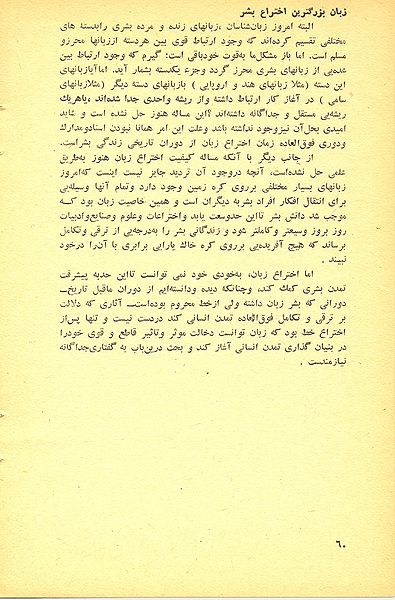 زبان بزرگترین اختراع بشر
البته امروز زبان‌شناسان ، زبانهای زنده و مرده بشری را بدسته های
مختلفی تقسیم کرده‌اند که وجود ارتباط قوی بین هر دسته از زبانها محرز و
مسلم است. اما باز مشکل ما به‌قوت خود باقی است؛ گیرم که وجود ارتباط بین
عده‌یی از زبانهای بشری محرز گردد و جزء یکدسته بشمار آید. اما آیا زبانهای
این دسته (مثلا زبانهای هند و اروپایی ) با زبانهای دسته دیگر (مثلا زبانهای
سامی ) در آغاز کار ارتباط داشته و از ریشه واحدی جدا شده‌اند، یا هر یک
ریشه‌یی مستقل و جداگانه داشته‌اند ؟ این مساله هنوز حل نشده است و شاید
امیدی بحل آن نیز وجود نداشته باشد و علت این امر همانا نبودن اسناد و مدارک
و دوری فوق‌العاده زمان اختراع زبان از دوران تاریخی زندگی بشر است.
از جانب دیگر با آنکه مساله کیفیت اختراع زبان هنوز به‌طریق
علمی حل نشده‌است، آنچه در وجود آن تردید جایز نیست اینست که امروز
زبانهای بسیار مختلفی بر روی کره زمین وجود دارد و تمام آنها وسیله‌یی
برای انتقال افکار افراد بشر به دیگران است و همین خاصیت زبان بود کــه
موجب شد دانش بشر تا این حد وسعت یابد و اختراعات و علوم و صنایع و ادبیات
روز بروز وسیعتر و کاملتر شود و زندگانی بشر را به‌درجه‌یی از ترقی و تکامل
برساند که هیچ آفریده‌یی بر روی کره خاک یارایی برابری با آن را در خود
نبیند .
اما اختراع زبان، به‌خودی خود نمی توانست تا این حد به پیشرفت
تمدن بشری کمک کند، و چنانکه دیده و دانسته‌ایم از دوران ماقبل تاریخ ــ
دورانی که بشر زبان داشته ولی از خط محروم بوده‌است ــ آثاری که دلالت
بر ترقی و تکامل فوق‌العاده تمدن انسانی کند در دست نیست و تنها پس از
اختراع خط بود که زبان توانست دخالت موثر و تاثیر قاطع و قوی خود را
در بنیان گذاری تمدن انسانی آغاز کند و بحث در این‌باب به گفتاری جداگانه
نیازمندست .
۶۰